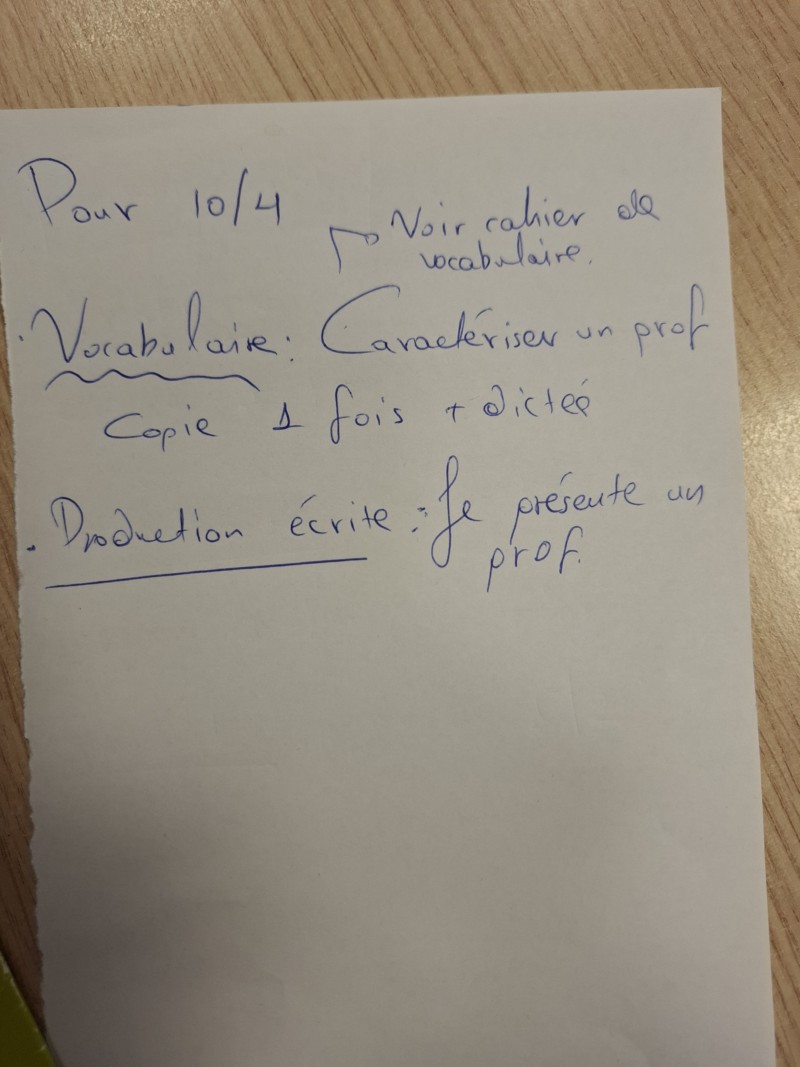 Pour 10/4
Voir cahier de
vocabulaire.
. Vocabulaire : Caractériser un prof
Copie 1 fois + dictée
. Production écrite : Je présente un
prof.